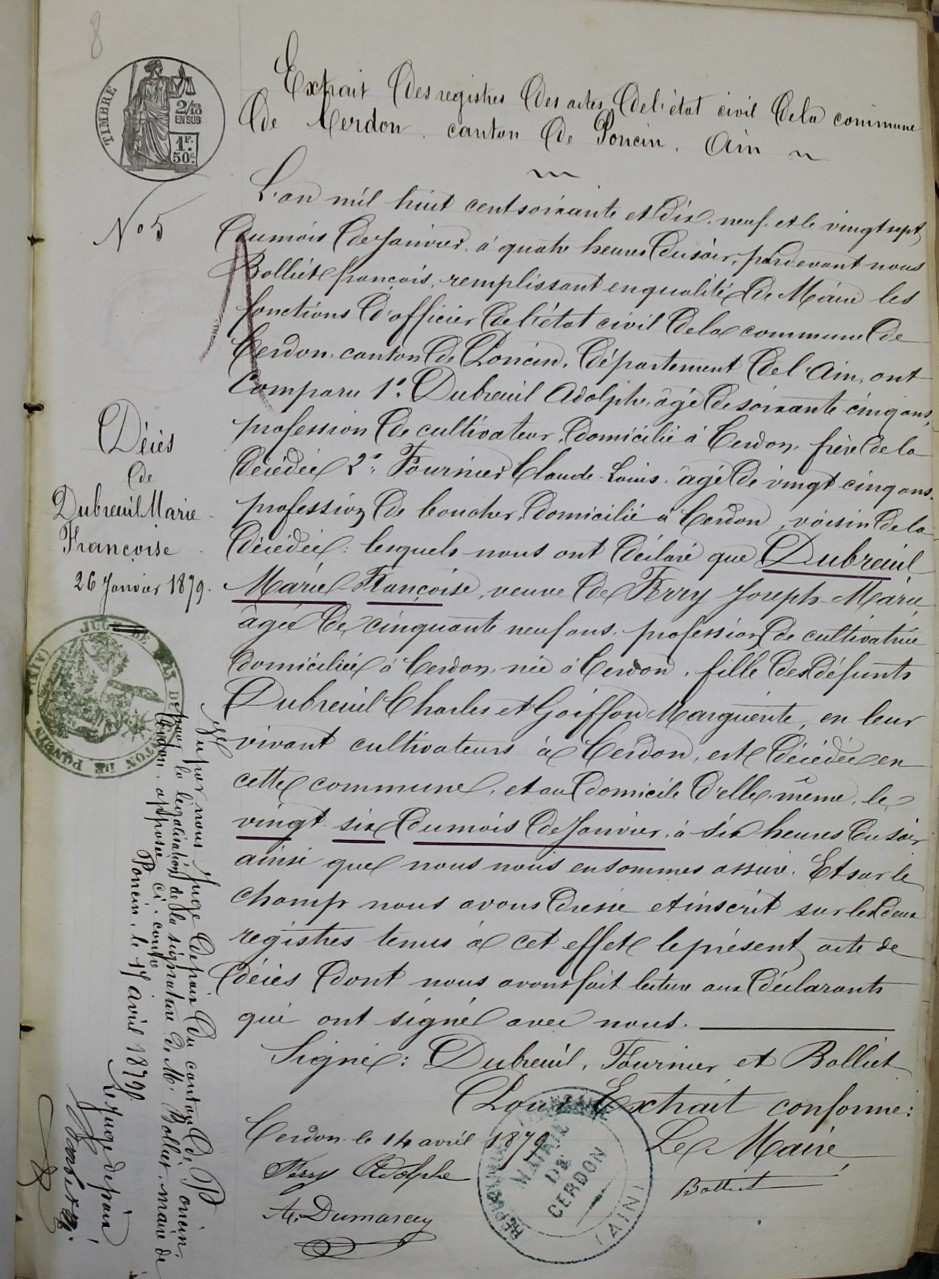 8
TIMBRE
2/10
EN SUS
1F.
50c.
Extrait des registres des actes de l'état civil de la commune
de Cerdon, canton de Poncin, Ain
No 5
L'an mil huit cent soixante et dix-neuf et le vingt sept
du mois de Janvier à quatre heures du soir, par devant nous
Bolliet françois, remplissant en qualité de Maire les
fonctions d'officier de l'état civil de la commune de
Cerdon, canton de Poncin, département de l'Ain, ont
Comparu 1° Dubreuil Adolphe, âgé de soixante cinq ans,
profession de cultivateur, domicilié à Cerdon, frère de la
décédée 2° Fournier Claude-Louis, âgé de vingt cinq ans,
profession de boucher, domicilié à Cerdon, voisin de la
décédée; lesquels nous ont déclaré que Dubreuil
Marie Françoise, veuve de Ferry Joseph-Marie,
âgée de cinquante neuf ans, profession de cultivatrice
domiciliée à Cerdon, née à Cerdon, fille des défunts
Dubreuil Charles et Goiffon Marguerite, en leur
vivant cultivateurs à Cerdon, est décédée en
cette commune, et au domicile d'elle-même, le
vingt six du mois de Janvier, à six heures du soir
ainsi que nous nous en sommes assuré. Et sur le
champ nous avons dressé et inscrit sur les deux
registres tenus à cet effet le présent acte de
décès dont nous avons fait lecture aux déclarants
qui ont signé avec nous.
Signé: Dubreuil, Fournier et Bolliet
Pour Extrait conforme:
Le Maire
Bolliet
Cerdon le 14 avril 1879
Ferry Adolphe
A. Dumarey
MAIRIE
DE
CERDON
(AIN)
Décès
de
Dubreuil Marie
Françoise
26 Janvier 1879.
JUGE DE PAIX DU CANTON DE PONCIN (AIN)
Vu par nous Juge de paix du canton de Poncin,
pour la légalisation de la signature de M. Bolliet, maire de
Cerdon, apposée ci-contre
Poncin, le 15 avril 1879
Le Juge de paix